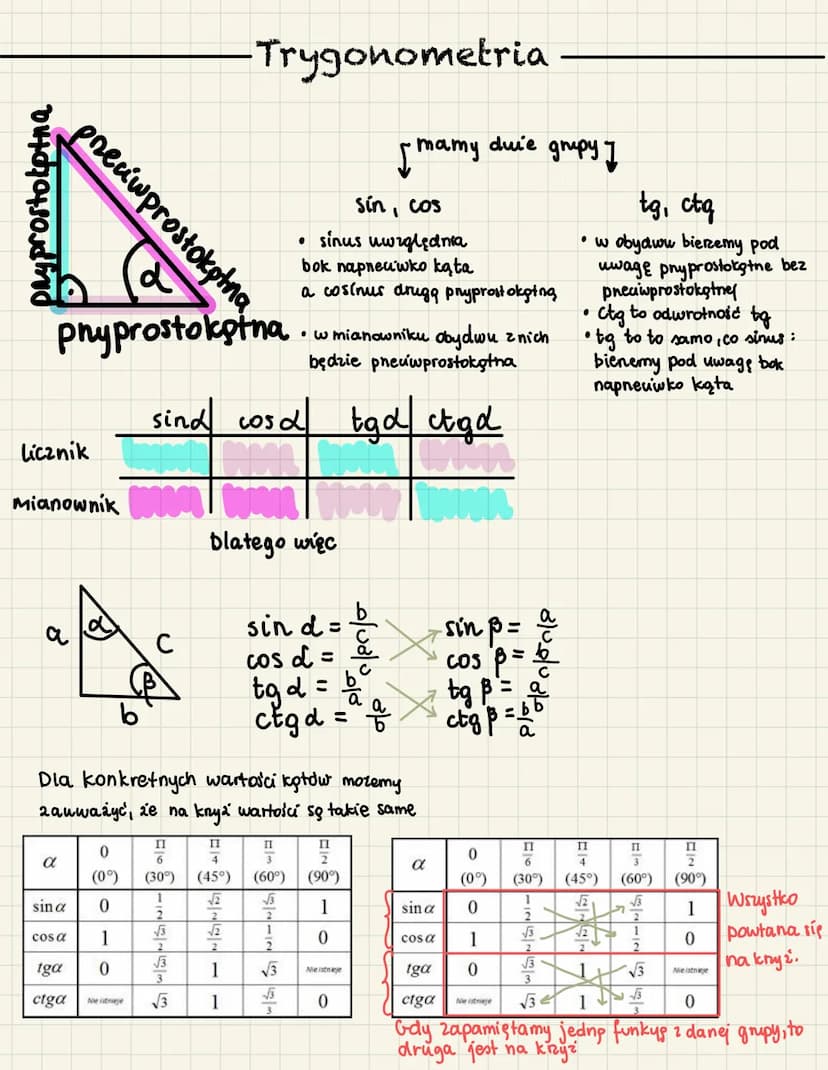 Trygonometria
przyprostokątna
przeciwprostokątna
α
przyprostokątna
mamy dwie grupy
sin, cos
• sinus uwzględnia
bok naprzeciwko kąta
a cosinus drugą przyprostokątną
• w mianowniku obydwu z nich
będzie przeciwprostokątna
tg, ctg
• w obydwu bierzemy pod
uwagę przyprostokątne bez
przeciwprostokątnej
• Ctg to odwrotność tg
• tg to to samo, co sinus:
bierzemy pod uwagę bok
naprzeciwko kąta
sinα cosα tgα ctgα
Licznik
Mianownik
Dlatego więc
a α c
β
b
sin α = b/c sin β = a/c
cos α = a/c cos β = b/c
tg α = b/a tg β = a/b
ctg α = a/b ctg β = b/a
Dla konkretnych wartości kątów możemy
zauważyć, że na krzyż wartości są takie same
α 0 (0°) Π/6 (30°) Π/4 (45°) Π/3 (60°) Π/2 (90°)
sin α 0 1/2 √2/2 √3/2 1
cos α 1 √3/2 √2/2 1/2 0
tgα 0 √3/3 1 √3 Nie istnieje
ctgα Nie istnieje √3 1 √3/3 0
α 0 (0°) Π/6 (30°) Π/4 (45°) Π/3 (60°) Π/2 (90°)
sin α 0 1/2 √2/2 √3/2 1
cos α 1 √3/2 √2/2 1/2 0
tgα 0 √3/3 1 √3 Nie istnieje
ctgα Nie istnieje √3 1 √3/3 0
Wszystko
powtarza się
na krzyż.
Gdy zapamiętamy jedną funkcję z danej grupy, to
druga jest na krzyż